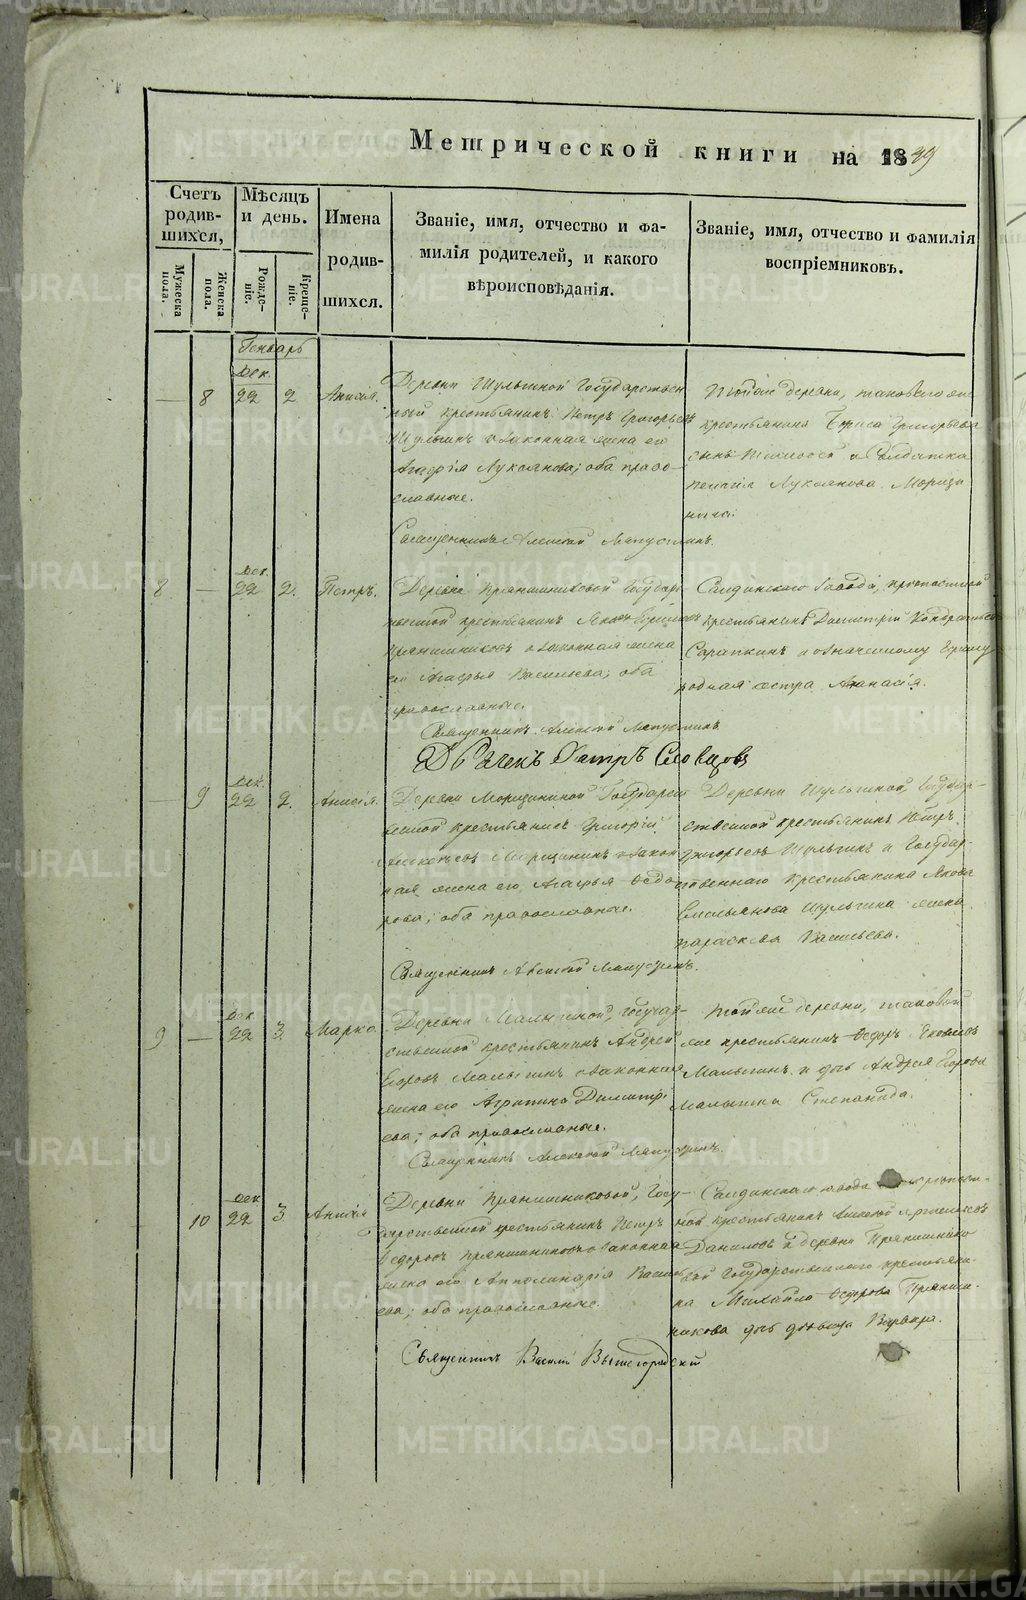 Метрической книги на 1849
Счетъ родив-шихся,
Мѣсяцъ и день.
Имена родив-шихся.
Званіе, имя, отчество и фа-
милія родителей, и какого
вѣроисповѣданія.
Званіе, имя, отчество и фамилія
воспріемниковъ.
Мужеска пола.
Женска пола.
Рожде-ніе.
Креще-ніе.
Генварь
Дек.
— 8 22 2 Анисія.
Деревни Шульгиной Государствен
ный крестьянинъ Петръ Григорьевъ
Шульгинъ и законная жена его
Агафія Лукоянова; оба право-
славные.
Священникъ Алексей
Тойже деревни, таковаго же
крестьянина Бориса Григорьева
сынъ и Солдатка
Лукоянова
8 — Дек. 22 2. Петръ.
Деревни Пряничниковой Государ
ственной крестьянинъ Яковъ
Пряничниковъ и законная жена
его Агафья Васильева; оба
православные.
Священникъ Алексей
Салдинскаго завода,
крестьянинъ Димитрій Кондратьевъ
Сарапкинъ и означенному
родная сестра Афанасія.
Дьячекъ Петръ Словцовъ
— 9 Дек. 22 2. Анисія.
Деревни Морщининой Государст
венной крестьянинъ Григорій
Морщининъ и закон
ная жена его, Агафья Федо
рова; оба православные.
Священникъ Алексей
Деревни Шульгиной Государ-
ственной крестьянинъ Петръ
Григорьевъ Шульгинъ и Государ-
ственнаго крестьянина Якова
Емельянова Шульгина жена
Параскева Васильева.
9 — Дек 22 3. Марко.
Деревни Малыгиной, Государ-
ственной крестьянинъ Андрей
Егоровъ Малыгинъ и законная
жена его Агрипина Димитрі
ева; оба православные.
Священникъ Алексей
Тойже деревни, таковой
же крестьянинъ Федоръ
Малыгинъ и дочь Андрея Егорова
Малыгина Степанида.
10 дек 22 3 Анисія
Деревни Пряничниковой, Госу-
дарственной крестьянинъ Петръ
Федоровъ Пряничниковъ и законная
жена его Апполинарія Василь
ева; оба православные.
Священникъ Василій Вышегородскій
Салдинскаго завода
крестьянинъ Алексей
Даниловъ и деревни Пряничнико
вой Государственнаго крестьяни-
на Михаила Федорова Прянич-
никова дочь девица Варвара.
METRIKI.GASO-URAL.RU